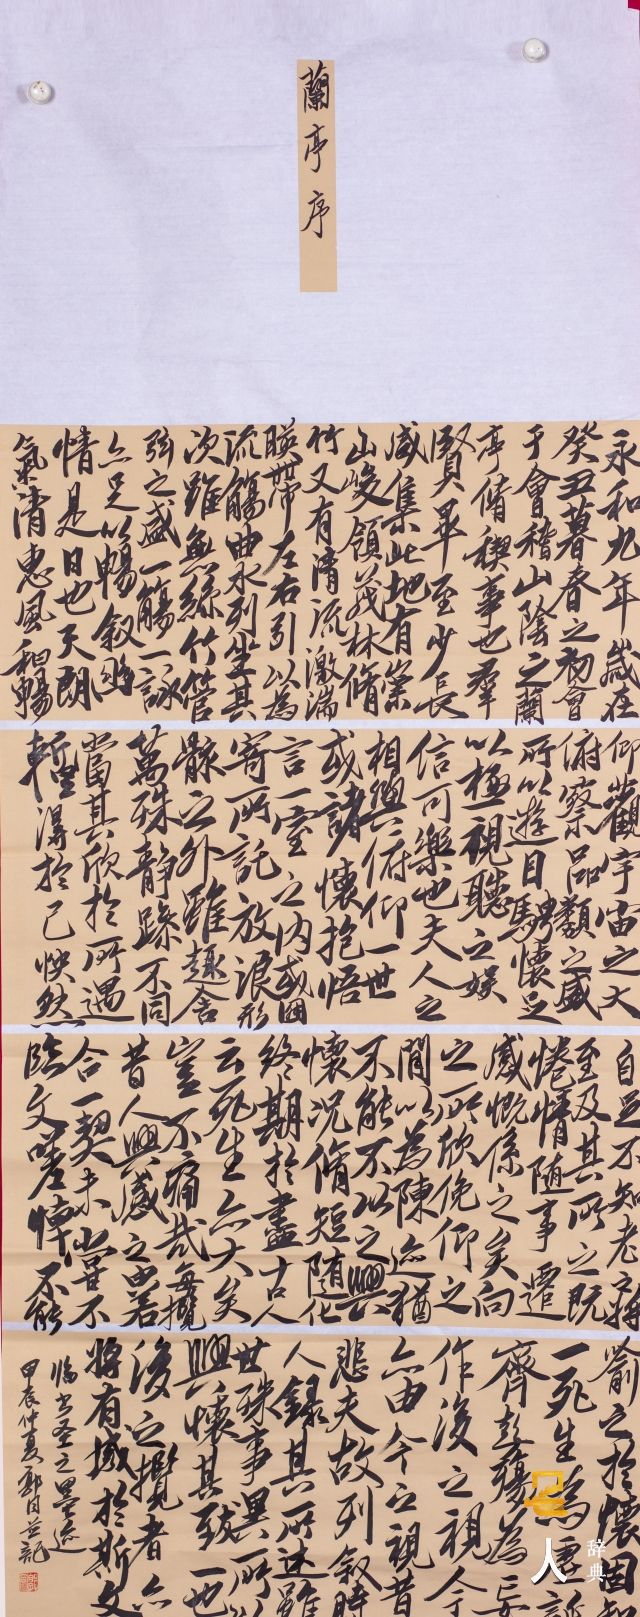 蘭亭序
永和九年歲在
癸丑暮春之初會
于會稽山陰之蘭
亭脩稧事也羣
賢畢至少長
咸集此地有崇
山峻領茂林脩
竹又有清流激湍
暎帶左右引以為
流觴曲水列坐其
次雖無絲竹管
弦之盛一觴一詠
亦足以暢叙幽
情是日也天朗
氣清惠風和暢
仰觀宇宙之大
俯察品類之盛
所以遊目騁懷足
以極視聽之娛
信可樂也夫人之
相與俯仰一世
或諸懷抱悟
言一室之內或因
寄所託放浪形
骸之外雖趣舍
萬殊靜躁不同
當其欣於所遇
暫得於己怏然
自足不知老之將
至及其所之既
惓情隨事遷
感慨係之矣向
之所欣俛仰之
閒以為陳迹猶
不能不以之興
懷況脩短隨化
終期於盡古人
云死生亦大矣
豈不痛哉每攬
昔人興感之由若
合一契未嘗不
臨文嗟悼不能
喻之於懷固知
一死生為虛誕
齊彭殤為妄
作後之視今
亦由今之視昔
悲夫故列叙時
人錄其所述雖
世殊事異所以
興懷其致一也
後之攬者亦
將有感於斯文
臨書圣之墨迹
甲辰仲夏郭
人
辞典